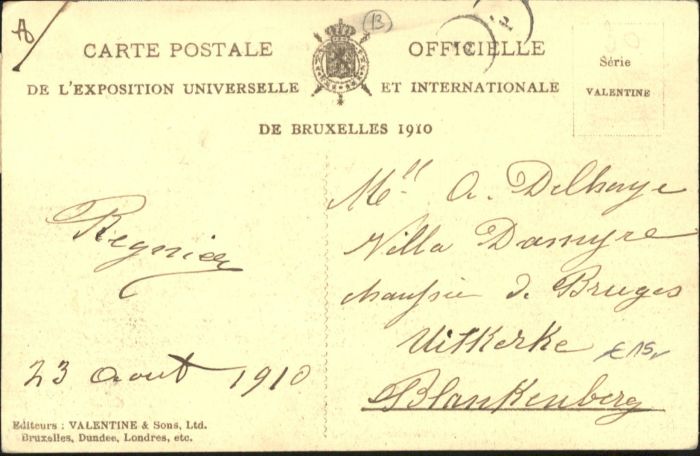 CARTE POSTALE OFFICIELLE
DE L'EXPOSITION UNIVERSELLE ET INTERNATIONALE
DE BRUXELLES 1910
Série
VALENTINE
B
Regnier
23 aout 1910
Mlle A. Delhaye
Villa Damyre
chaussée de Bruges
Uitkerke
Blankenberg
€ 15,
Editeurs : VALENTINE & Sons, Ltd.
Bruxelles, Dundee, Londres, etc.